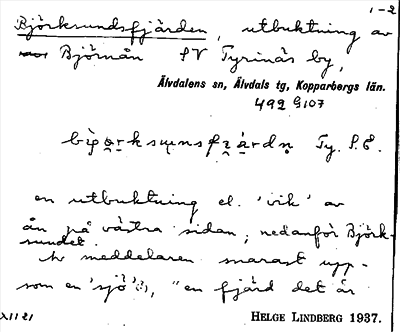 1-2
Björksundsfjärden, utbuktning av
Björnån SV Tyrinäs by,
Älvdalens sn, Älvdals tg, Kopparbergs län.
492 G107
Ty. S.E.
en utbuktning el. 'vik' av
ån på västra sidan, nedanför Björk-
sundet.
Av meddelaren marast upp-
som en 'sjö', "en fjärd det är
XII 21 HELGE LINDBERG 1937.